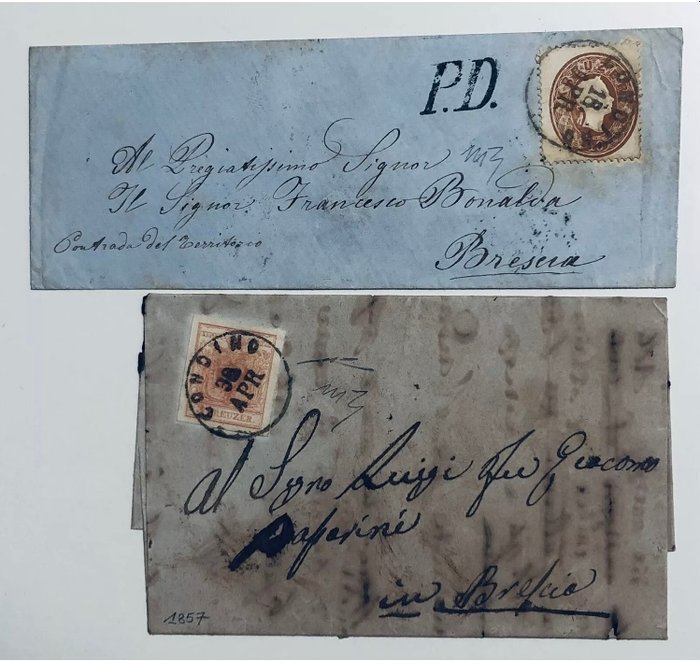 P.D.
18
Al Pregiatissimo Signor
Il Signor Francesco Bonalda
Contrada del Territorio
Brescia
CONDINO
30
APR
KREUZER
Al Sigro Luigi fu Giacomo
in Brescia
1857